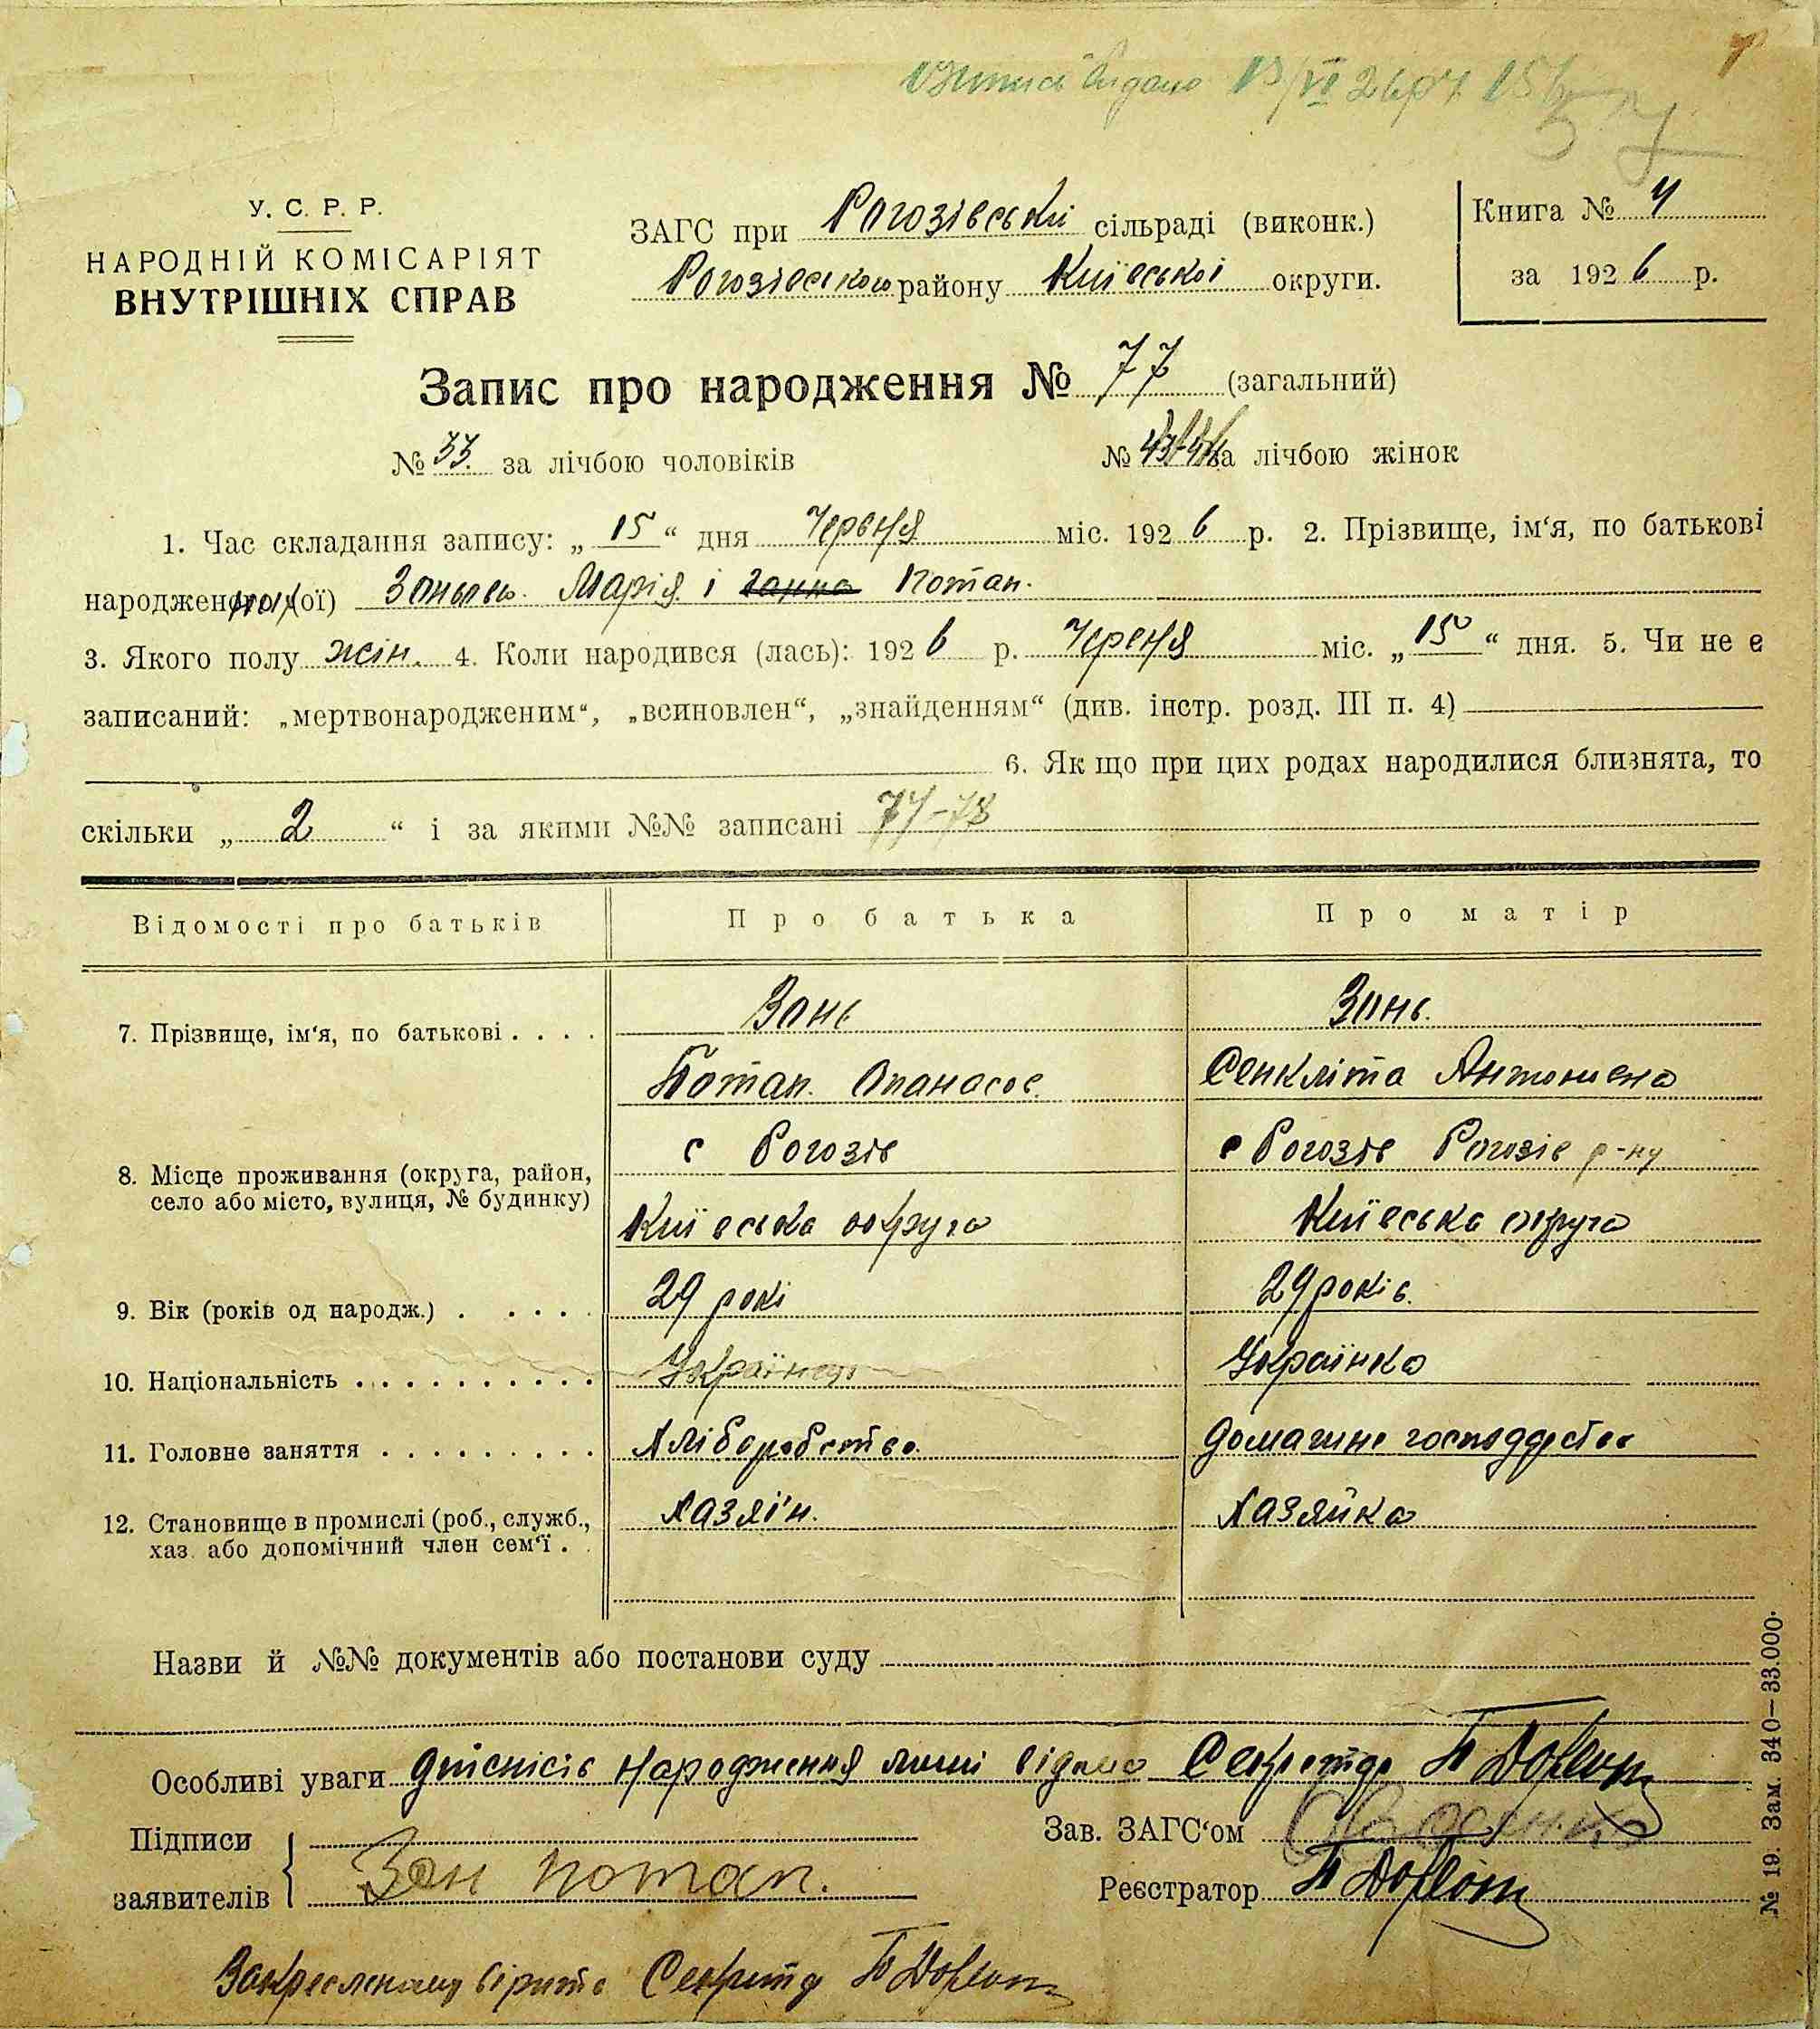 57
У. С. Р. Р.
НАРОДНІЙ КОМІСАРІЯТ
ВНУТРІШНІХ СПРАВ
ЗАГС при Рогозівській сільраді (виконк.)
Рогозівського району Київської округи.
Книга № 4
за 1926 р.
Запис про народження № 77 (загальний)
№ 33. за лічбою чоловіків № за лічбою жінок
1. Час складання запису: „ 15 “ дня Червня міс. 1926 р. 2. Прізвище, ім‘я, по батькові
народжен (ої) Марія і Ганна Потап.
3. Якого полу жін. 4. Коли народився (лась): 1926 р. Червня міс. „ 15 “ дня. 5. Чи не є
записаний: „мертвонародженим“, „всиновлен“, „знайденням“ (див. інстр. розд. III п. 4)
6. Як що при цих родах народилися близнята, то
скільки „ 2 “ і за якими №№ записані 77-78
Відомості про батьків Про батька Про матір
7. Прізвище, ім‘я, по батькові . . . . Зань Зань.
Потап. Опанасов. Сенкліта Антонівна
8. Місце проживання (округа, район, с Рогозів с Рогозів Рогозів р-ну
село або місто, вулиця, № будинку) Київська округа Київська округа
9. Вік (років од народж.) . . . . . 29 рокі 29 років.
10. Національність . . . . . . . . . . Українець Українка
11. Головне заняття . . . . . . . . . Хліборобство. домашнє господарство
12. Становище в промислі (роб., служб., Хазяїн. Хазяйка
хаз. або допомічний член сем‘ї . .
Назви й №№ документів або постанови суду
Особливі уваги дійсність народження Секретар
Підписи
заявителів Зан потап.
Зав. ЗАГС‘ом
Реєстратор
Закресленому вірить Секретар
№ 19. Зам. 340—33.000.